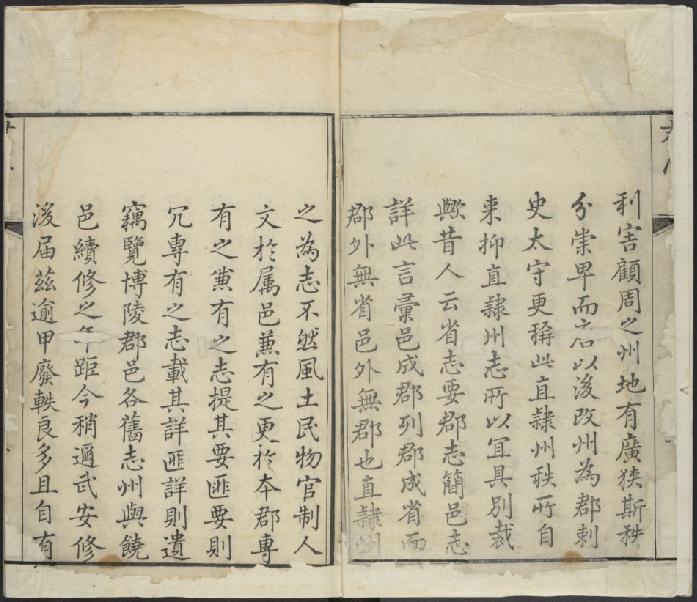 利害顧周之州地有廣狹斯秩
分崇卑而后以後改州為郡刺
史太守更稱此直隸州秩所自
来抑直隸州志所以冝具別裁
歟昔人云省志要郡志簡邑志
詳此言彙邑成郡列郡成省而
郡外無省邑外無郡也直隸州
之為志不然風土民物官制人
文於属邑蒹有之更於本郡專
有之蒹有之志提其要匪要則
冗專有之志載其詳匪詳則遺
竊覽博陵郡邑各舊志州與饒
邑續修之年距今稍邇武安修
後届兹逾甲廢軼良多且自有